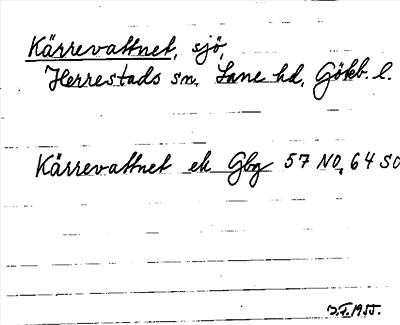 Kärrevattnet, sjö,
Herrestads sn, Lane hd, Göteb. l.
Kärrevattnet ek Gbg 57 NO, 64 SO
J.F. 1955.